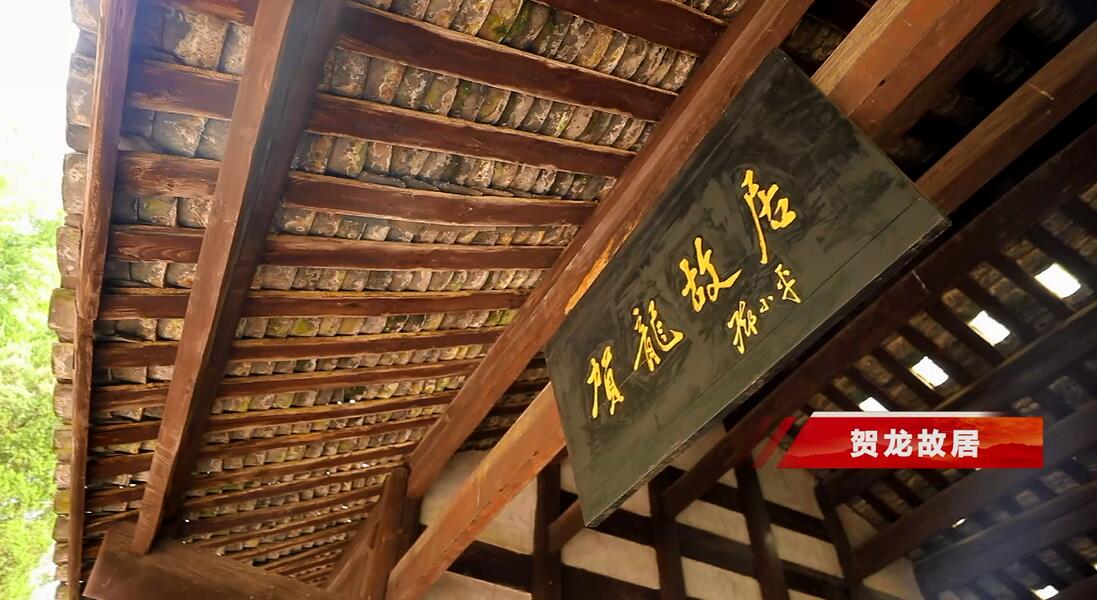 賀龍故居
邓小平
贺龙故居